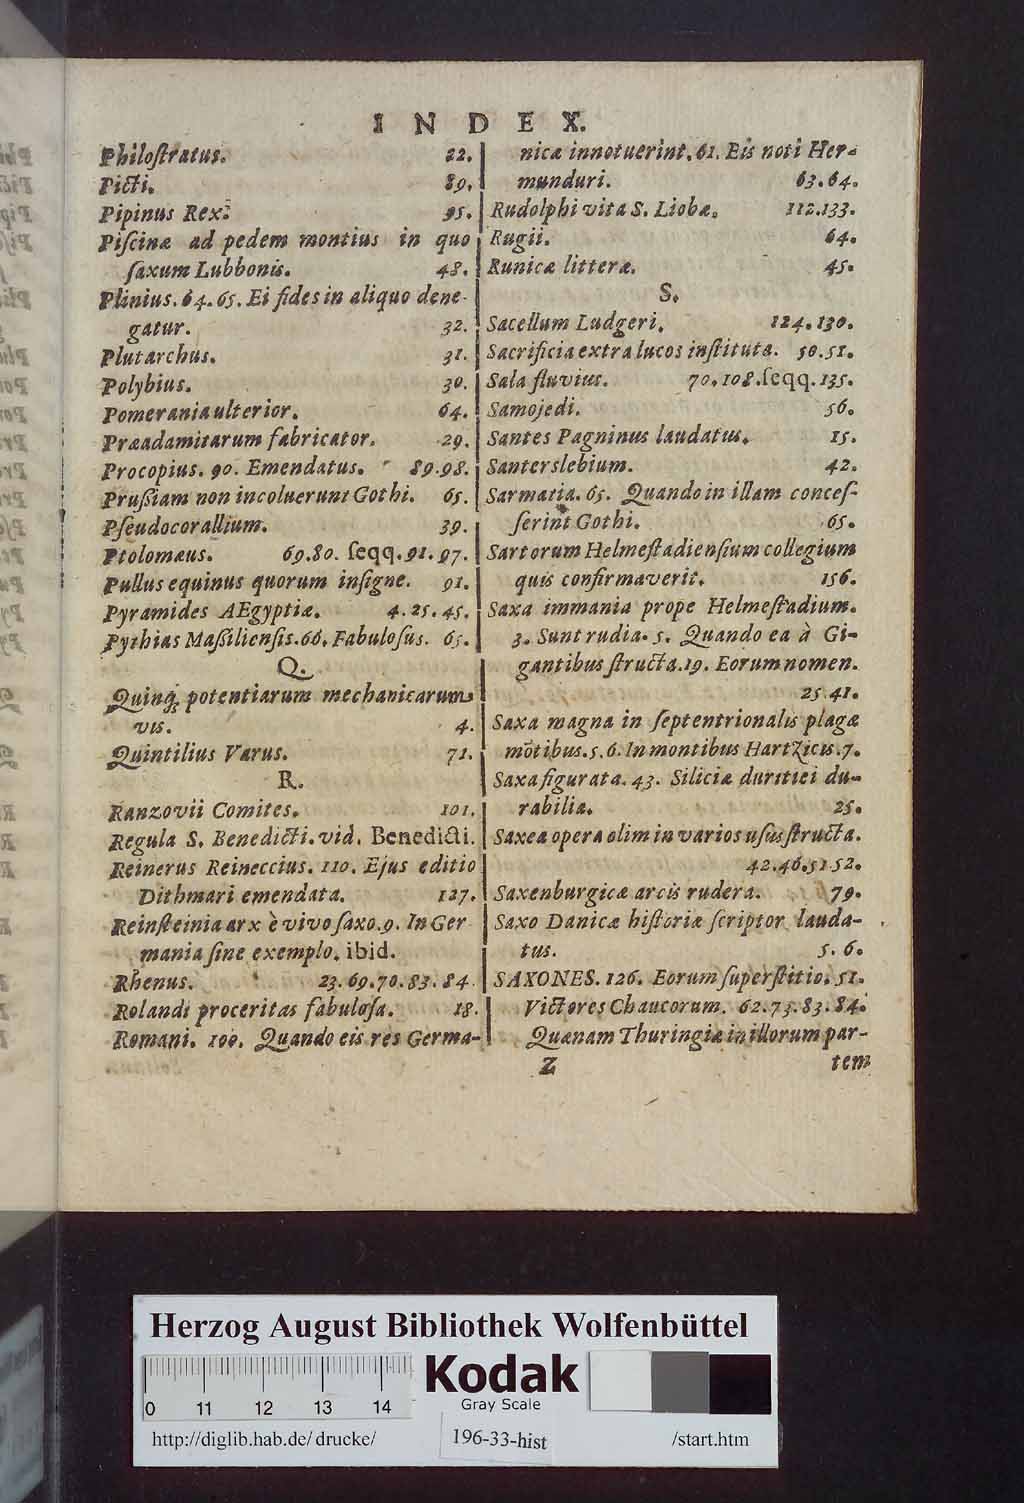 INDEX.
Philoſtratus. 22.
Picti. 89.
Pipinus Rex. 95.
Piſcinæ ad pedem montius in quo
ſaxum Lubbonis. 48.
Plinius. 64. 65. Ei fides in aliquo dene-
gatur. 32.
Plutarchus. 31.
Polybius. 30.
Pomerania ulterior. 64.
Præadamitarum fabricator. 29.
Procopius. 90. Emendatus. 89. 98.
Prußiam non incoluerunt Gothi. 65.
Pſeudocorallium. 39.
Ptolomæus. 69. 80. ſeqq. 91. 97.
Pullus equinus quorum inſigne. 91.
Pyramides AEgyptiæ. 4. 25. 45.
Pythias Maßilienſis. 66. Fabuloſus. 65.
Q.
Quinq; potentiarum mechanicarum
vis. 4.
Quintilius Varus. 71.
R.
Ranzovii Comites. 101.
Regula S. Benedicti. vid. Benedicti.
Reinerus Reineccius. 110. Ejus editio
Dithmari emendata. 127.
Reinſteinia arx è vivo ſaxo. 9. In Ger
mania ſine exemplo. ibid.
Rhenus. 23. 69. 70. 83. 84.
Rolandi proceritas fabuloſa. 18.
Romani. 100. Quando eis res Germa-
nicæ innotuerint. 61. Eis noti Her-
munduri. 63. 64.
Rudolphi vita S. Liobæ. 112. 133.
Rugii. 64.
Runicæ litteræ. 45.
S.
Sacellum Ludgeri. 124. 130.
Sacrificia extra lucos inſtituta. 50. 51.
Sala fluvius. 70. 108. ſeqq. 135.
Samojedi. 56.
Santes Pagninus laudatus. 15.
Santerslebium. 42.
Sarmatia. 65. Quando in illam conceſ-
ſerint Gothi. 65.
Sartorum Helmeſtadienſium collegium
quis confirmaverit. 156.
Saxa immania prope Helmeſtadium.
3. Sunt rudia. 5. Quando ea à Gi-
gantibus ſtructa. 19. Eorum nomen.
25 41.
Saxa magna in ſeptentrionalis plagæ
mõtibus. 5. 6. In montibus Hartzicis. 7.
Saxa figurata. 43. Siliciæ duritiei du-
rabilia. 25.
Saxea opera olim in varios uſus ſtructa.
42. 46. 51 52.
Saxenburgicæ arcis rudera. 79.
Saxo Danicæ hiſtoriæ ſcriptor lauda-
tus. 5. 6.
SAXONES. 126. Eorum ſuperſtitio. 51.
Victores Chaucorum. 62. 73. 83. 84.
Quænam Thuringiæ in illorum par-
Z tem
Herzog August Bibliothek Wolfenbüttel
0 11 12 13 14
Kodak
Gray Scale
http://diglib.hab.de/drucke/ 196-33-hist /start.htm